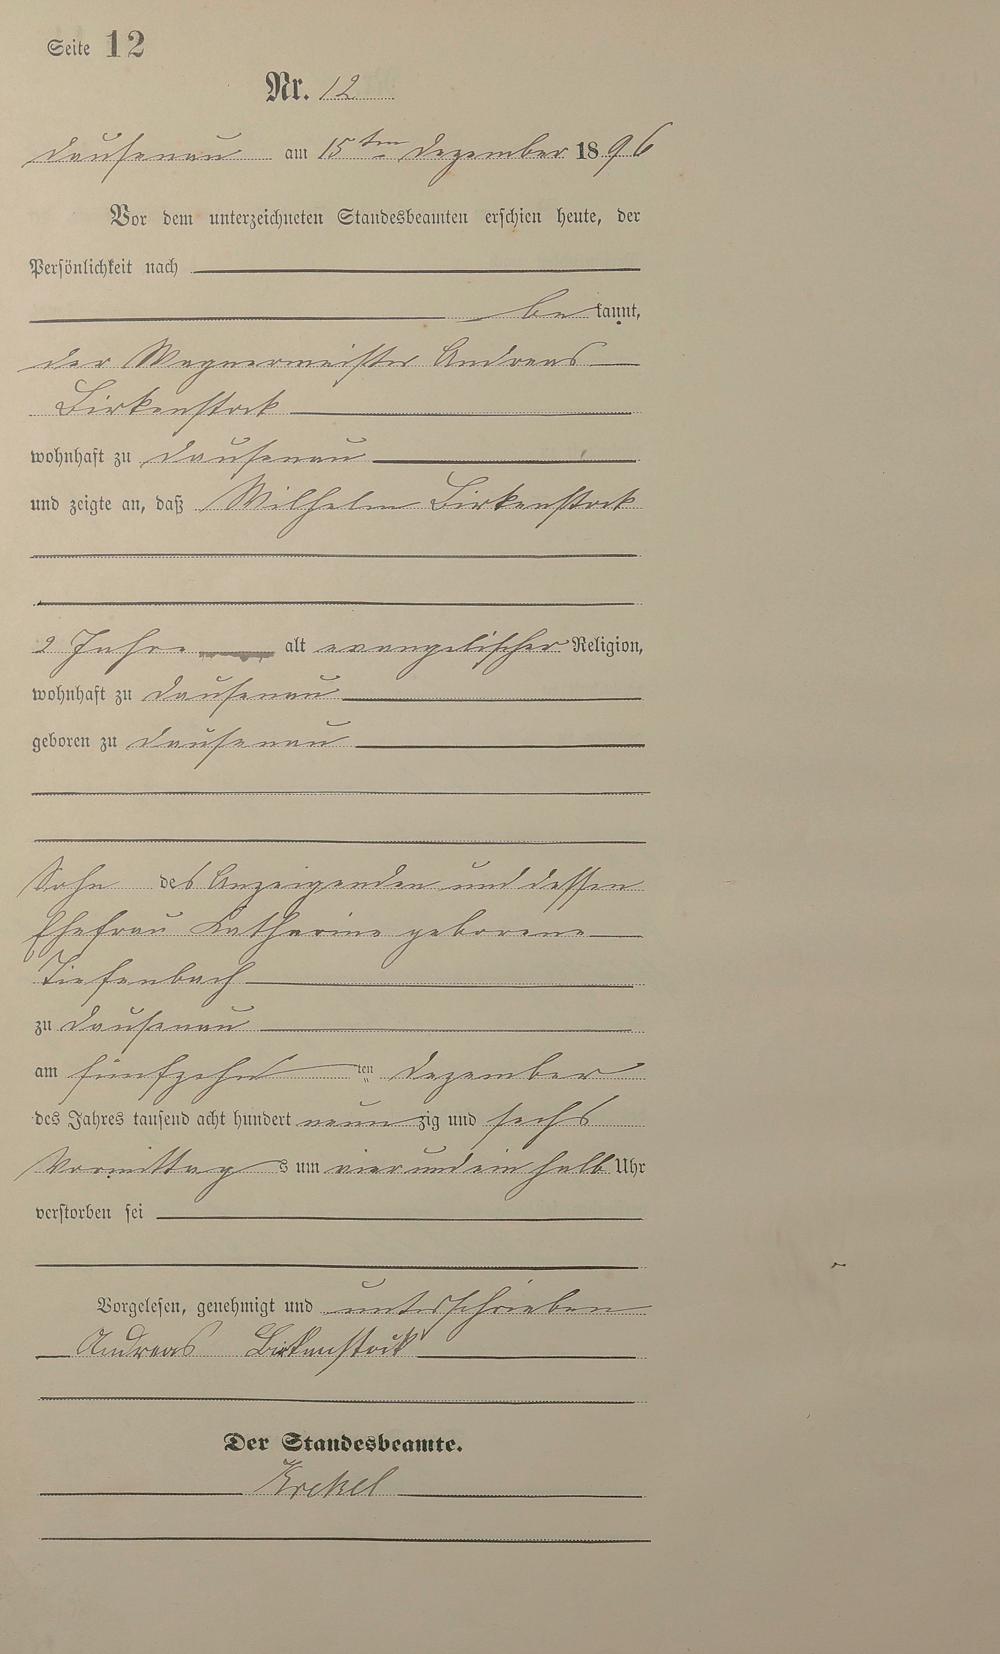 Seite 12
Nr. 12
Dausenau am 15ten Dezember 1896
Vor dem unterzeichneten Standesbeamten erschien heute, der
Persönlichkeit nach
bekannt,
der Wagnermeister Andreas
Birkenstock
wohnhaft zu Dausenau
und zeigte an, daß Wilhelm Birkenstock
2 Jahre alt evangelischer Religion,
wohnhaft zu Dausenau
geboren zu Dausenau
Sohn des Anzeigenden und dessen
Ehefrau Katharine geborene
Tiefenbach
zu Dausenau
am fünfzehnten Dezember
des Jahres tausend acht hundert neunzig und sechs
Vormittags um vier und ein halb Uhr
verstorben sei
Vorgelesen, genehmigt und unterschrieben
Andreas Birkenstock
Der Standesbeamte.
Krekel